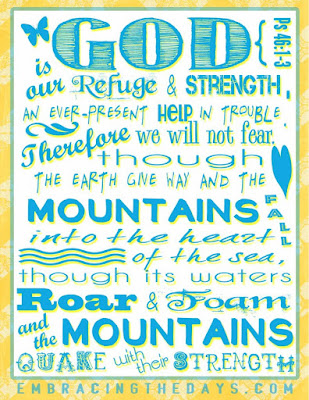 GOD
Ps 46:1-3
is our Refuge & STRENGTH,
AN EVER-PRESENT HELP IN TROUBLE.
Therefore we will not fear,
though
THE EARTH GIVE WAY AND THE
MOUNTAINS FALL
into the heart
of the sea,
though its waters
Roar & Foam
and the MOUNTAINS
QUAKE with their STRENGTH
EMBRACINGTHEDAYS.COM